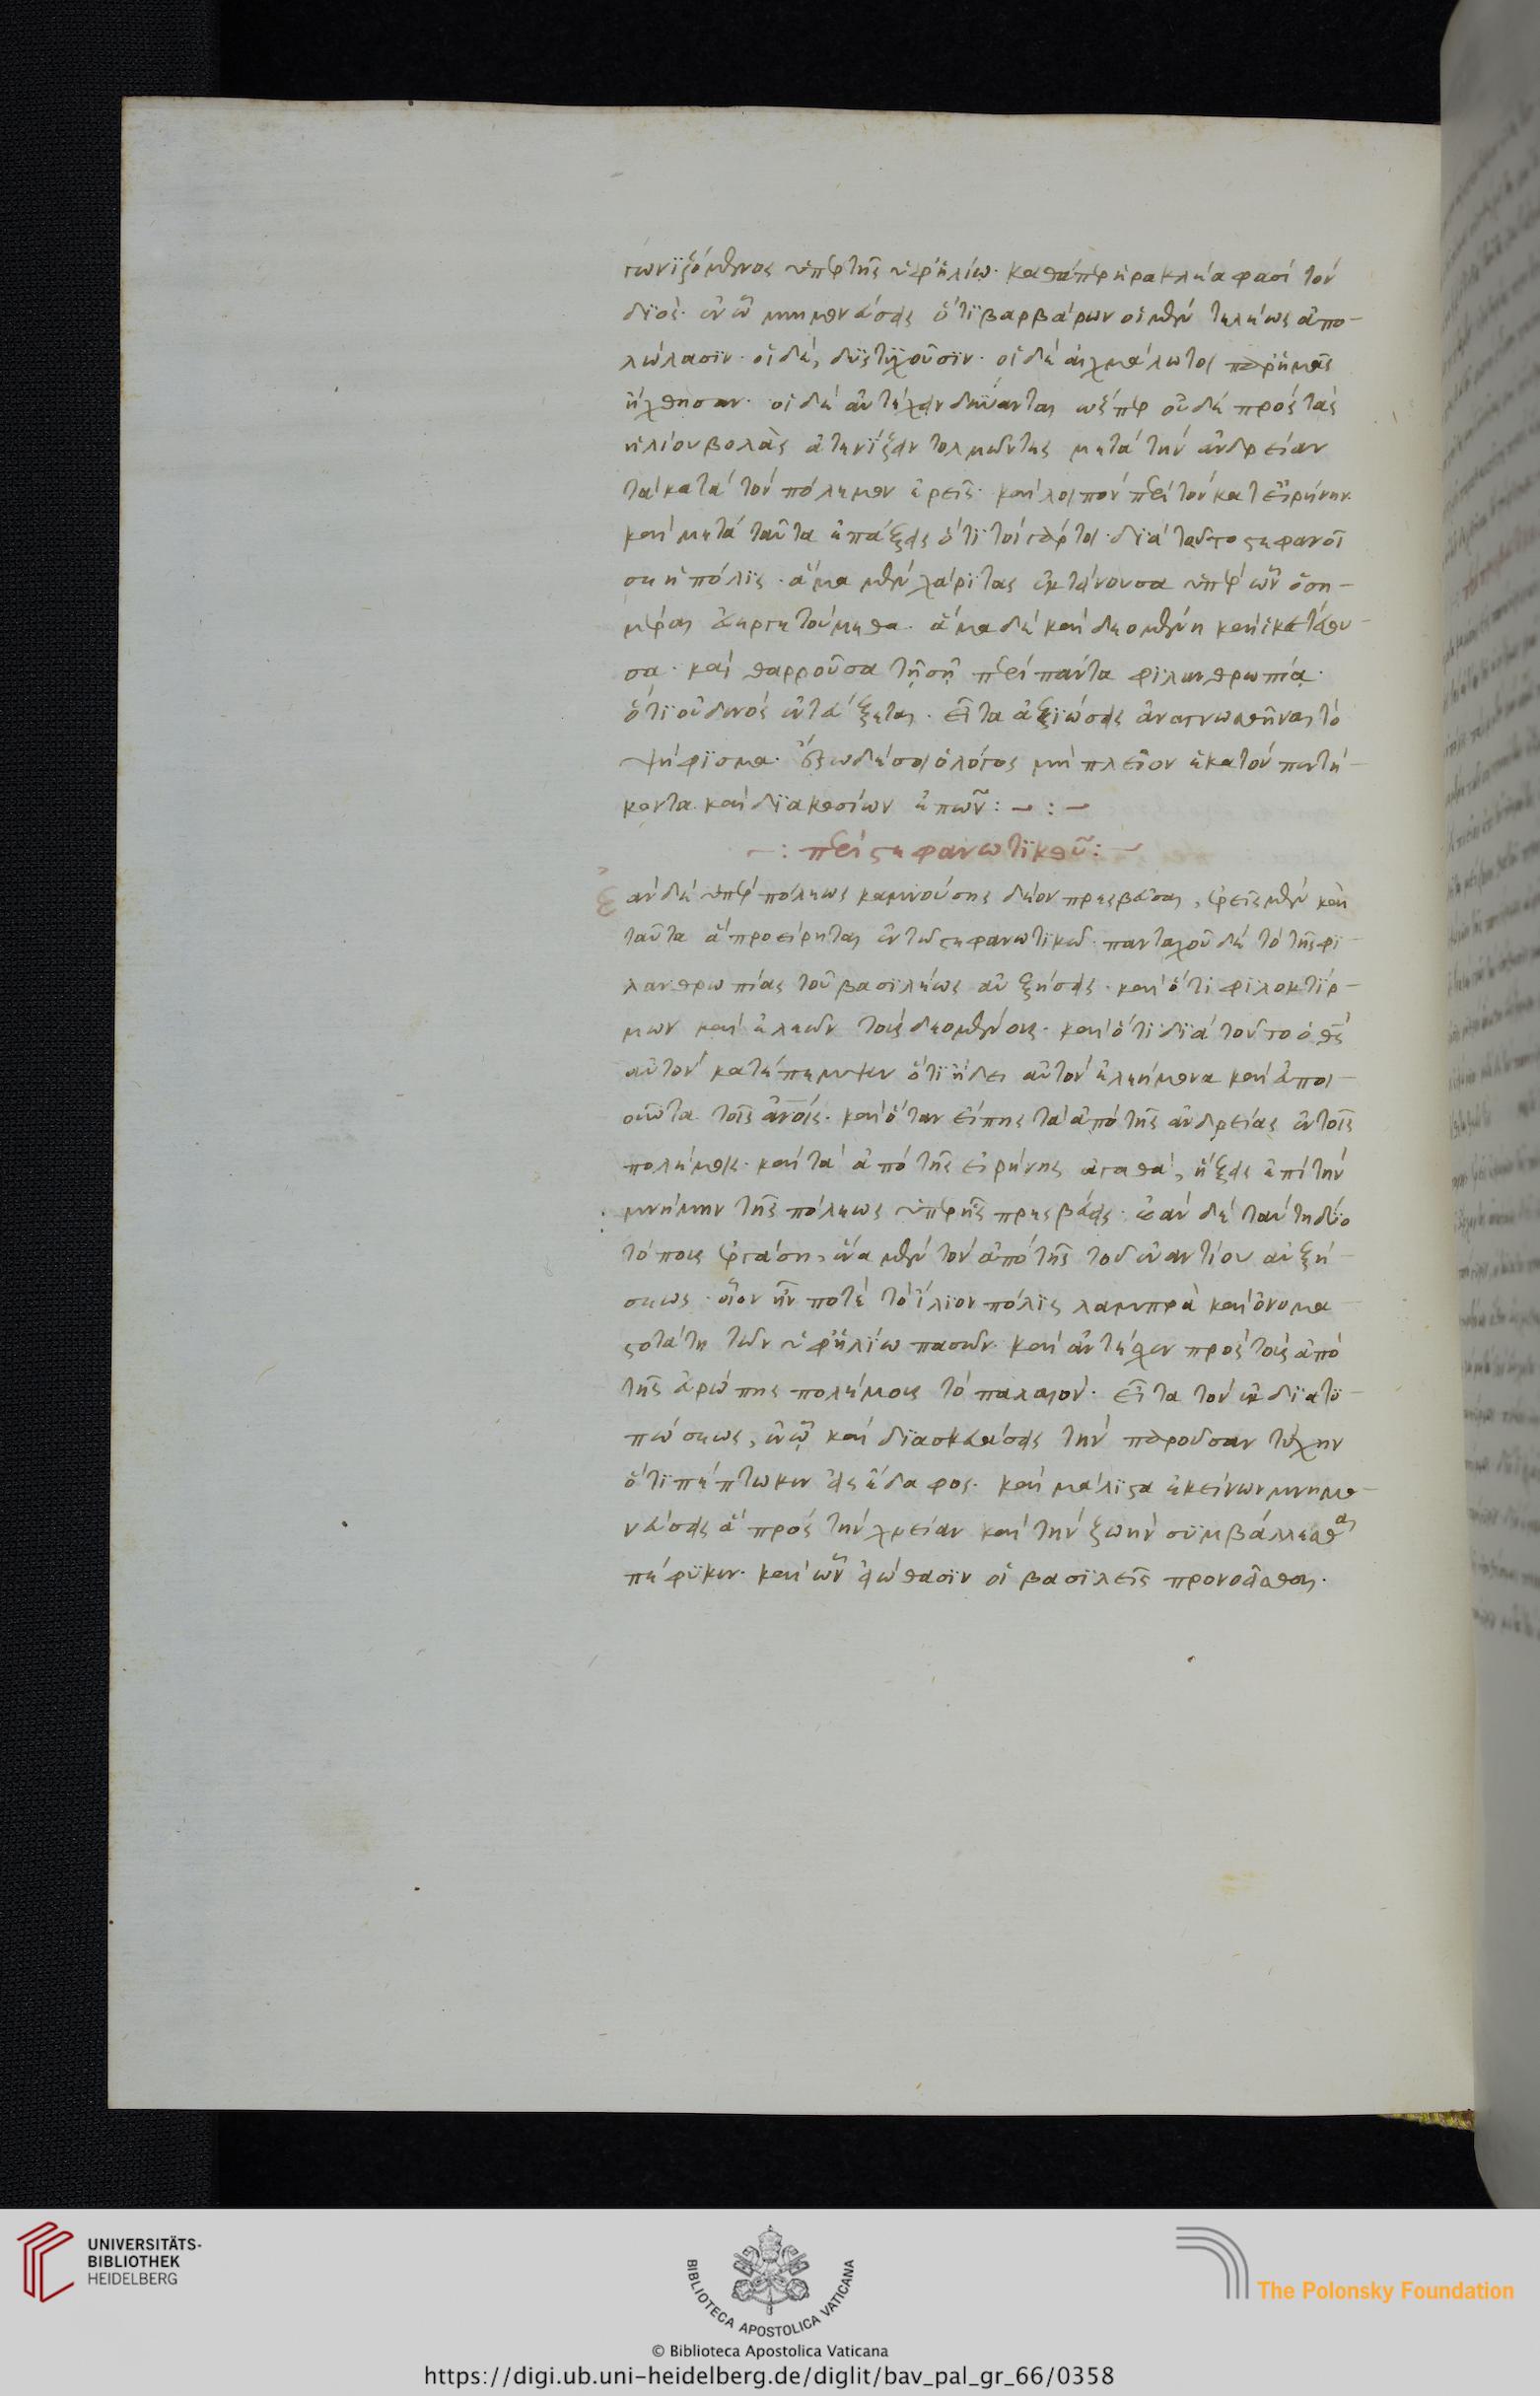 γωνιζόμενος ὑπὲρ τῆς ὑφηλίω· καθάπερ ἡρακλέα φασὶ τὸν
διὸς· ἐν ᾧ μνημονεύσεις ὅτι βαρβάρων οἱ μὲν τελέως ἀπο-
λώλασιν· οἱ δὲ, δυστυχοῦσιν· οἱ δὲ αἰχμάλωτοι παρ' ἡμᾶς
ἤχθησαν· οἱ δὲ ἀντέχειν δύνανται ὥσπερ οὐδὲ πρὸς τὰς
ἡλίου βολὰς ἀτενίζειν τολμῶντες μετὰ τὴν ἀνδρείαν
τὰ κατὰ τὸν πόλεμον ἐρεῖς· καὶ λοιπὸν περὶ τὸν κατ εἰρήνην.
καὶ μετὰ ταῦτα ἐπάξεις ὅτι τοιγάρτοι διὰ τοῦτο στεφανοῖ
σε ἡ πόλις· ἅμα μὲν χάριτας ἐκτίνουσα ὑπὲρ ὧν ὁση-
μέραι εὐεργετούμεθα· ἅμα δὲ καὶ δεομένη καὶ ἱκετεύου-
σα· καὶ θαρροῦσα τῇ σῇ περὶ πάντα φιλανθρωπίᾳ·
ὅτι οὐδενὸς ἀτεύξεται· εἶτα ἀξιώσεις ἀναγνωσθῆναι τὸ
ψήφισμα· ἔστω δέ σοι ὁ λόγος μὴ πλεῖον ἑκατὸν πεντή-
κοντα καὶ διακοσίων ἐπῶν: — : —
—: περὶ στεφανωτικοῦ: —
ἐὰν δὲ ὑπὲρ πόλεως καμνούσης δέον πρεσβεῦσαι, ἐρεῖς μὲν καὶ
ταῦτα ἃ προείρηται ἐν τῷ στεφανωτικῷ· πανταχοῦ δὲ τὸ τῆς φι-
λανθρωπίας τοῦ βασιλέως αὐξήσεις· καὶ ὅτι φιλοικτίρ-
μων καὶ ἐλεῶν τοὺς δεομένους· καὶ ὅτι διὰ τοῦτο ὁ θς
αὐτὸν κατέπεμψεν ὅτι ᾔδει αὐτὸν ἐλεήμονα καὶ εὖ ποι-
οῦντα τοὺς ἀνους· καὶ ὅταν εἴπῃς τὰ ἀπὸ τῆς ἀνδρείας ἐν τοῖς
πολέμοις· καὶ τὰ ἀπὸ τῆς εἰρήνης ἀγαθὰ, ἥξεις ἐπὶ τὴν
μνήμην τῆς πόλεως ὑπὲρ ἧς πρεσβεύεις· ἐὰν δὲ ταύτῃ δύο
τόπους ἐργάσῃ, ἕνα μὲν τὸν ἀπὸ τῆς τοῦ ἐναντίου αὐξή-
σεως· οἷον ἦν ποτὲ τὸ ἴλιον πόλις λαμπρὰ καὶ ὀνομα
στοτάτη τῶν ὑφ' ἡλίω πασῶν· καὶ ἀντεῖχεν πρὸς τοὺς ἀπὸ
τῆς εὐρώπης πολέμους τὸ παλαιόν· εἶτα τὸν ἐκ διατυ-
πώσεως, ἐν ᾧ καὶ διασκευάσεις τὴν παροῦσαν τύχην
ὅτι πέπτωκεν εἰς ἔδαφος· καὶ μάλιστα ἐκείνων μνημο-
νεύσεις ἃ πρὸς τὴν χρείαν καὶ τὴν ζωὴν συμβάλλεσθαι
πέφυκεν· καὶ ὧν εἰώθασιν οἱ βασιλεῖς προνοεῖσθαι·
UNIVERSITÄTS-
BIBLIOTHEK
HEIDELBERG
BIBLIOTECA APOSTOLICA VATICANA
The Polonsky Foundation
© Biblioteca Apostolica Vaticana
https://digi.ub.uni-heidelberg.de/diglit/bav_pal_gr_66/0358